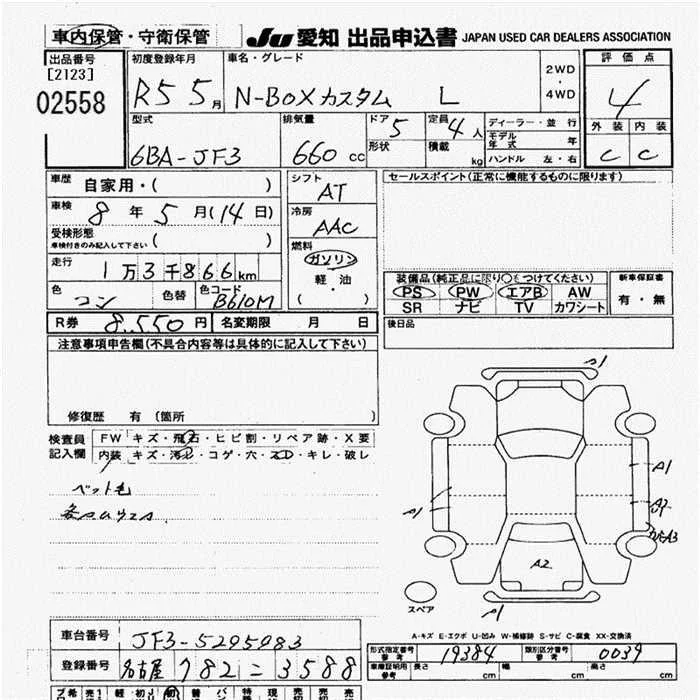 車内保管・守衛保管
JU 愛知 出品申込書 JAPAN USED CAR DEALERS ASSOCIATION
出品番号
[2123]
02558
初度登録年月
R5 5月
車名・グレード
N-BOXカスタム L
2WD
・
4WD
評価点
4
外装 内装
C C
型式
6BA-JF3
排気量
660 cc
ドア 5
形状
定員 4人
積載 kg
ディーラー・並行
モデル年式 年
ハンドル 左・右
車歴
自家用・( )
車検
8年5月(14日)
受検形態
車検付きのみ記入して下さい ( )
走行
1万3千866km
色
コン
色替
色コード
B610M
シフト
AT
冷房
AAC
燃料
ガソリン
軽油
( ・ )
セールスポイント(正常に機能するものに限ります)
装備品(純正品に限り○をつけてください)
PS PW エアB AW
SR ナビ TV カワシート
新車保証書
有・無
R券 8,550円 名変期限 月 日
後日品
注意事項申告欄(不具合内容等は具体的に記入して下さい)
修復歴 有 (箇所 )
検査員
記入欄
FW キズ・飛石・ヒビ割・リペア跡・X要
内装 キズ・汚レ・コゲ・穴・スレ・キレ・破レ
ペット毛
A1
A1
A1
A2
スペア
A-キズ E-エクボ U-凹み W-補修跡 S-サビ C-腐食 XX-交換済
車台番号 JF3-5295983
登録番号 名古屋 782 ニ 3588
形式指定番号
参考
19384
類別区分番号
参考
0039
車庫証明用
参考
長さ 幅 高さ